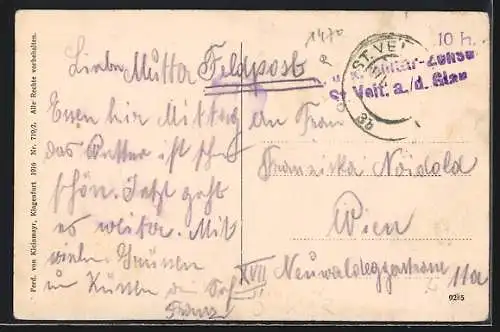 Ferd. von Kleinmayr, Klagenfurt 1916 Nr. 770/2. Alle Rechte vorbehalten.
Liebe Mutter
Essen hier Mittag
das Wetter ist sehr
schön. Jetzt geht
es weiter. Mit
vielen Grüssen
u Küssen dein Sohn
Franz
Feldpost
1470
10 h.
ST. VEIT
Militär-Zensur
St. Veit a./d. Glan
An Frau
Franziska Neidold
Wien
XVII Neuwaldeggerstrasse 11a
9285